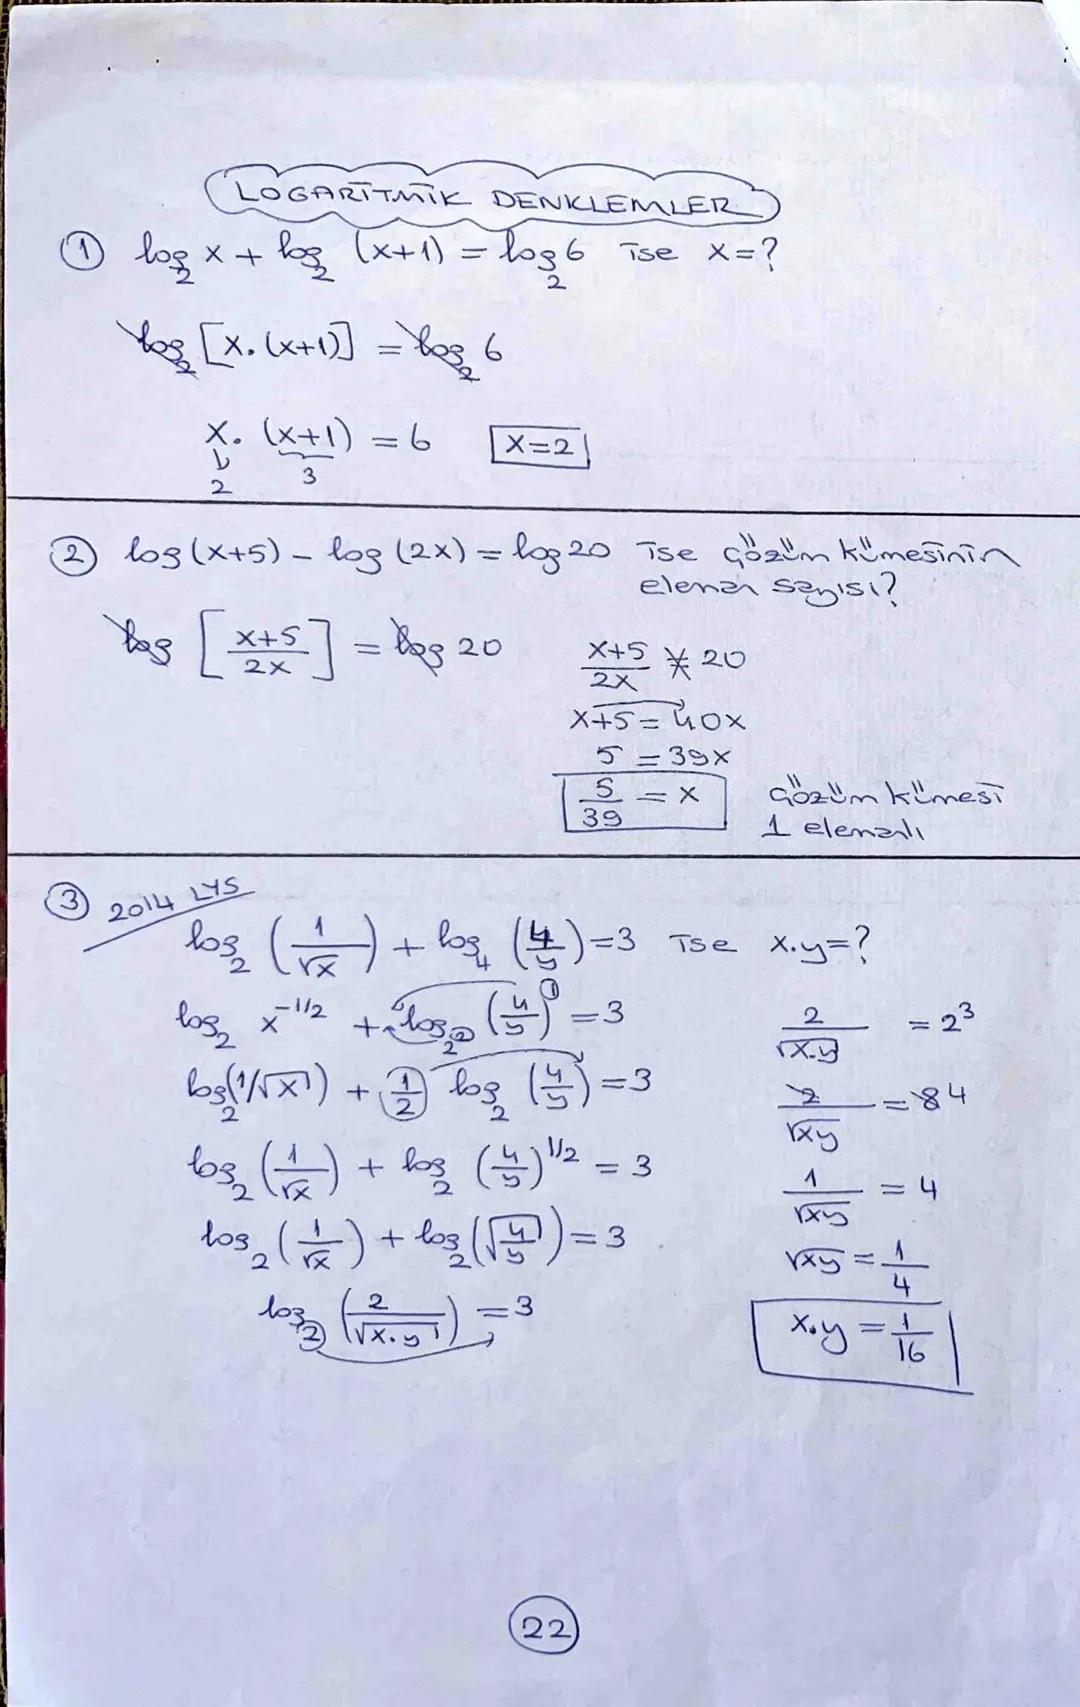 LOGARİTMİK DENKLEMLER
① log₂ x + log₂ (x+1) = log₂ 6 ise x=?
log₂ [x.(x+1)] = log₂ 6
x. (x+1) = 6 x=2
2 3
② log(x+5) - log(2x) = log 20 ise çözüm kümesinin
eleman sayısı?
log [(x+5)/(2x)] = log 20
(x+5)/(2x) = 20
x+5 = 40x
5 = 39x
5/39 = x
çözüm kümesi
1 elemanlı
③ 2014 LYS
log₂ (1/√x) + log₄ (4/y) = 3 ise x.y=?
log₂ x^(-1/2) + log₂² (4/y)¹ = 3
log₂(1/√x) + 1/2 log₂ (4/y) = 3
log₂ (1/√x) + log₂ (4/y)^(1/2) = 3
log₂ (1/√x) + log₂ (√(4/y)) = 3
log₂ (2/√(x.y)) = 3
2/√(x.y) = 2³
2/√(xy) = 8 4
1/√(xy) = 4
√(xy) = 1/4
x.y = 1/16
22